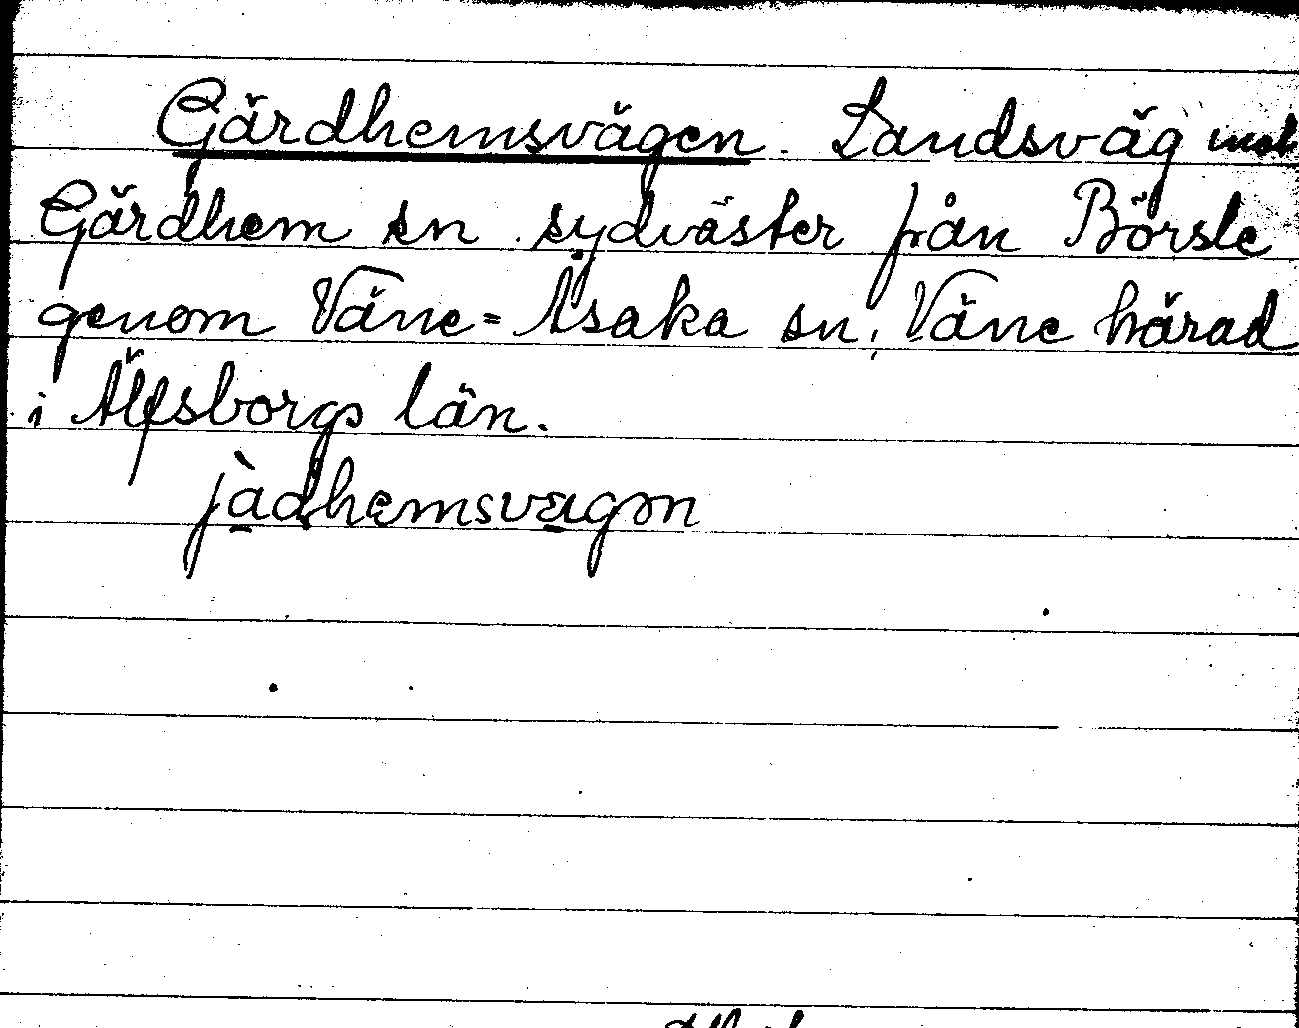 Gärdhemsvägen. Landsväg mot
Gärdhem sn sydväster från Börsle
genom Väne=Åsaka sn, Väne härad
i Älfsborgs län.
jàdhemsvägən